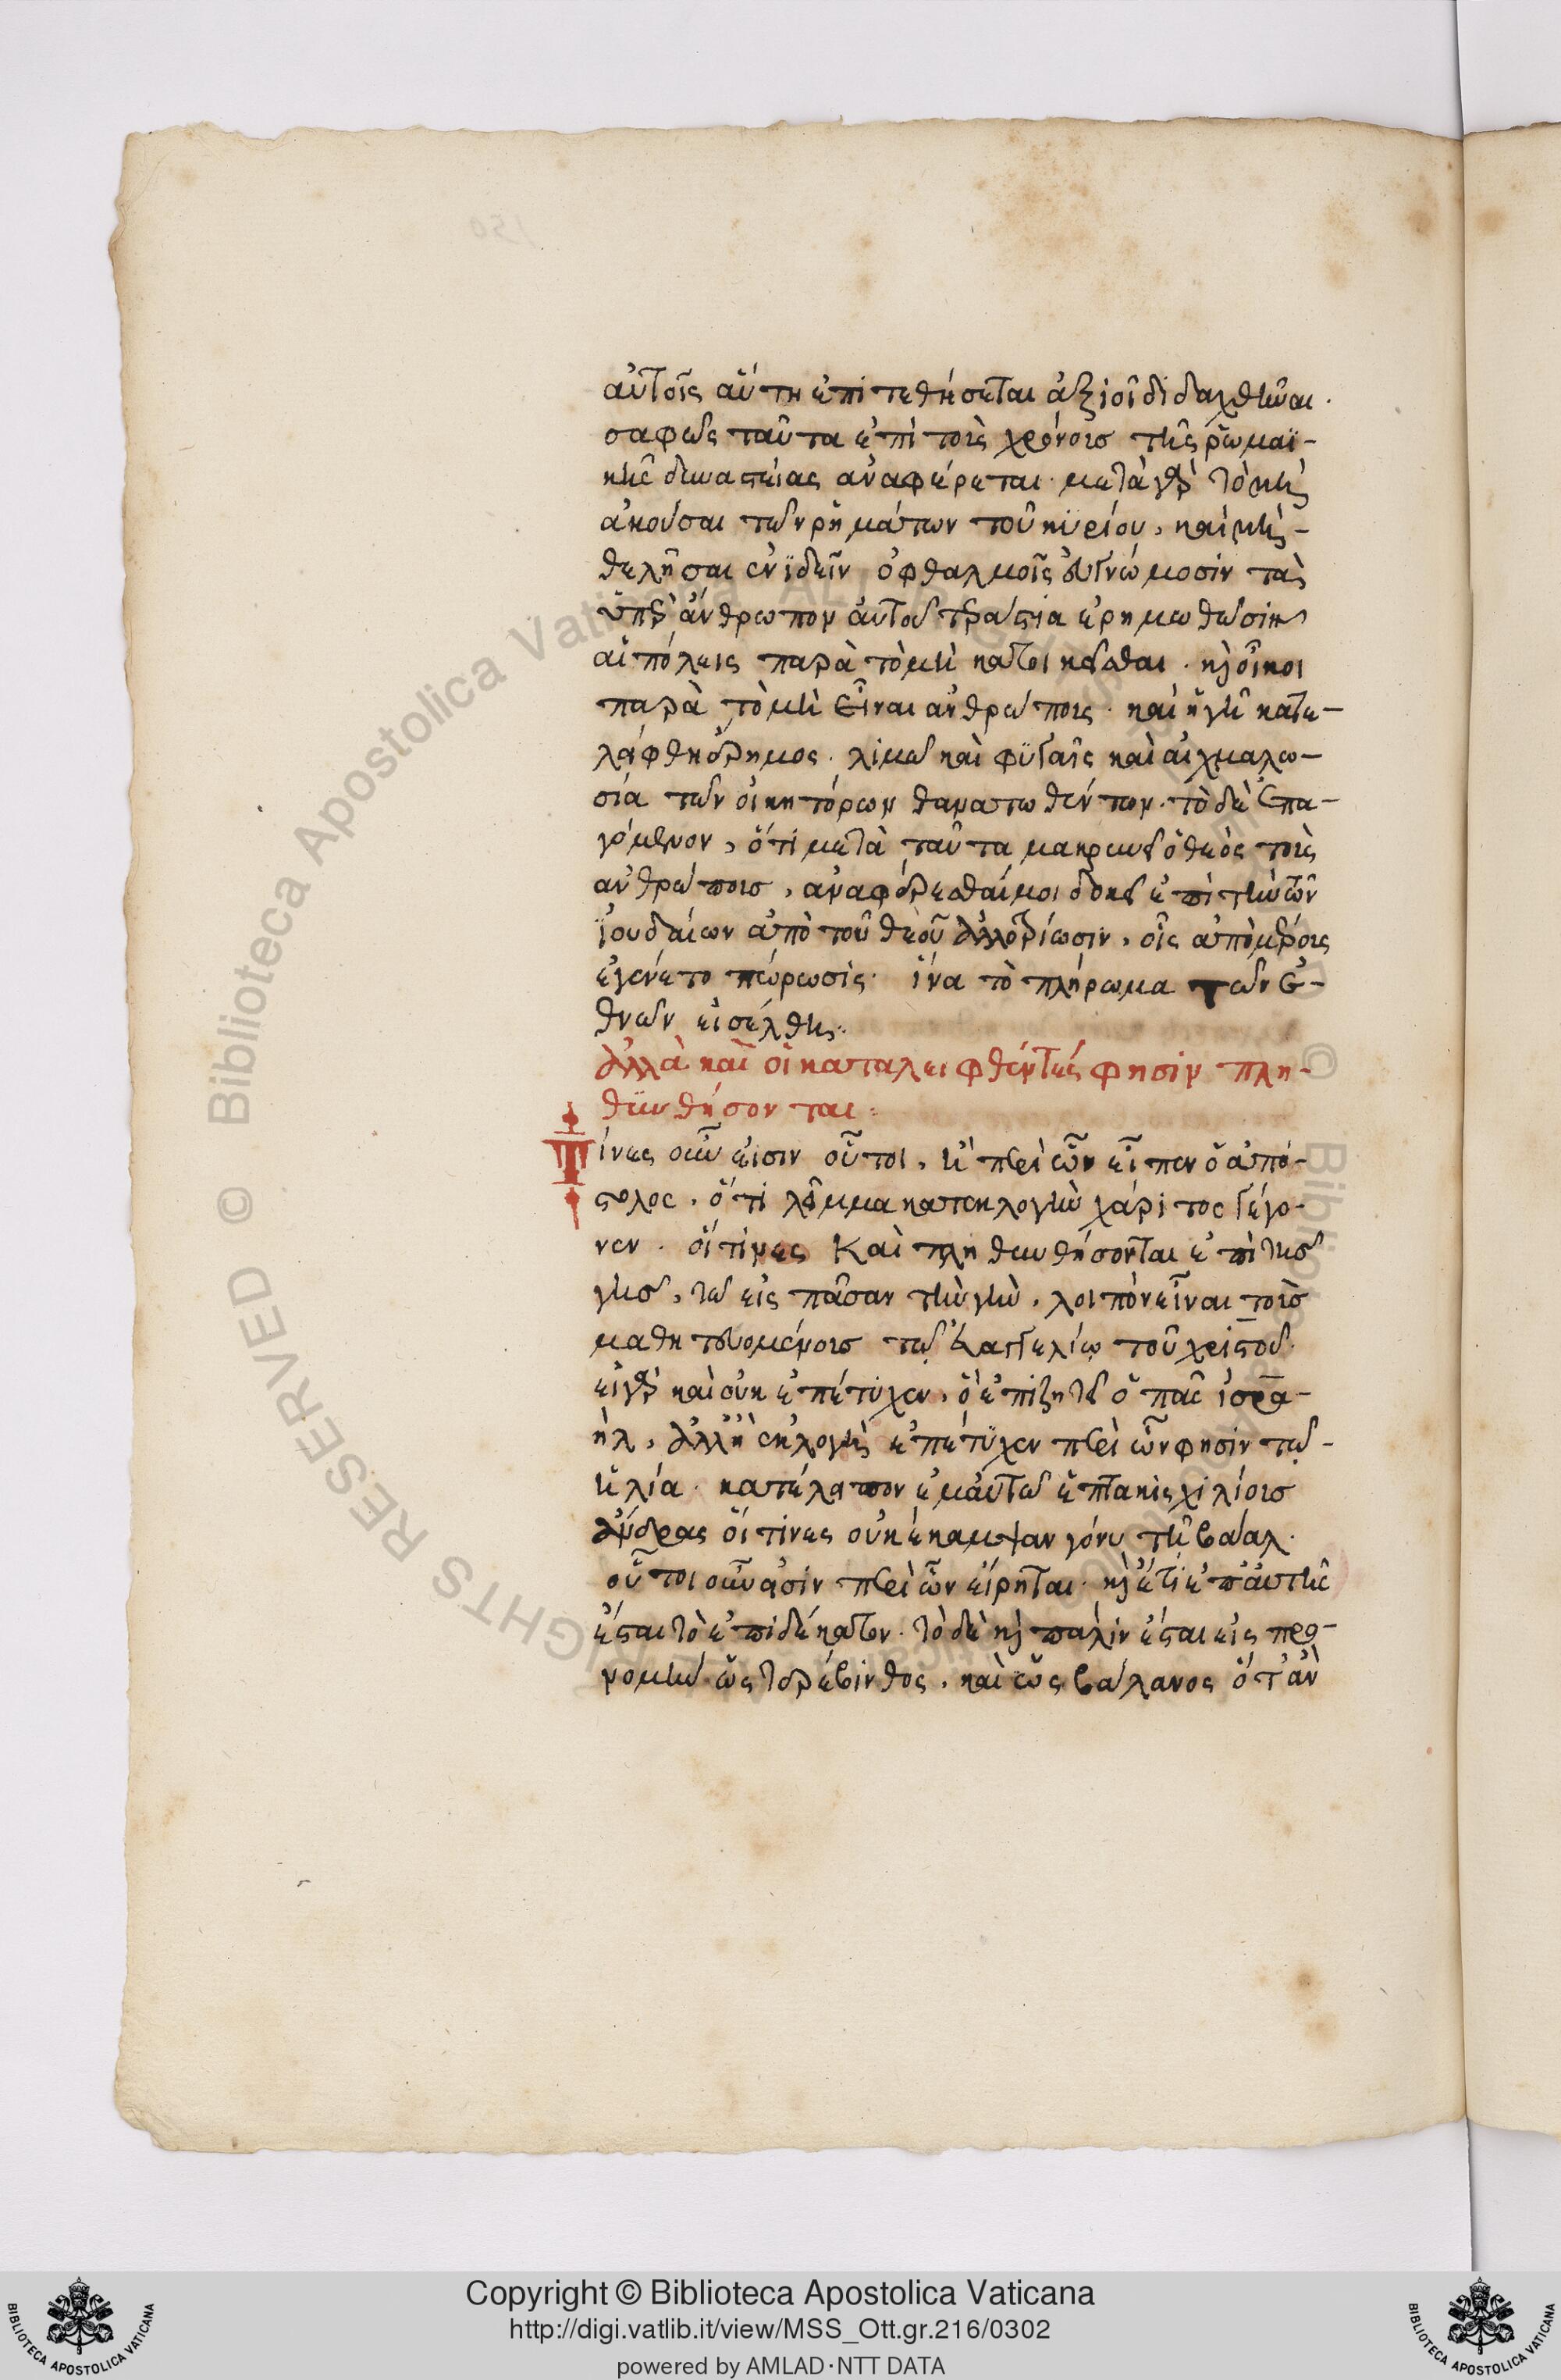 αὐτοῖς αὕτη ἐπιτεθήσεται ἀξιοῖ διδαχθῆναι.
σαφῶς ταῦτα ἐπὶ τοῖς χρόνοισ τῆς ῥωμαϊ-
κῆς δυναστείας ἀναφέρεται. μετὰ γὰρ τὸ μὴ
ἀκοῦσαι τῶν ῥημάτων τοῦ κυρίου, καὶ μὴ
θελῆσαι ἐνϊδεῖν ὀφθαλμοῖς εὐγνώμοσιν τὰ
ὑπὲρ ἄνθρωπον αὐτοῦ τεράστια ἐρημωθῶσιν
αἱ πόλεις παρὰ τὸ μὴ κατοικεῖσθαι. καὶ οἶκοι
παρὰ τὸ μὴ εἶναι ἀνθρώποις. καὶ ἡ γῆ κατε-
λείφθη ἔρημος. λιμῶ καὶ φυγαῖς καὶ αἰχμαλω-
σία τῶν οἰκητόρων θανατωθέντων. τὸ δὲ ἐπα-
γόμενον, ὅτι μετὰ ταῦτα μακρυνεῖ ὁ θεὸς τοὺς
ἀνθρώποισ, ἀναφέρεσθαί μοι δοκεῖ ἐπὶ τὴν τῶν
ἰουδαίων ἀπὸ τοῦ θεοῦ ἀλλοτρίωσιν, οἷς ἀπὸ μέροις
ἐγένετο πώρωσις. ἵνα τὸ πλήρωμα τῶν ἐ-
θνῶν εἰσέλθη:
ἀλλὰ καὶ οἱ καταλειφθέντές φησιν πλη-
θυνθήσονται:
Τίνες οὖν εἰσιν οὗτοι, ἢ περὶ ὧν εἶπεν ὁ ἀπό-
στολος, ὅτι λεῖμμα κατ' ἐκλογὴν χάριτος γέγο-
νεν. οἵτινες Καὶ πληθυνθήσονται ἐπὶ τῆς
γῆς, τῶ εἰς πᾶσαν τὴν γῆν, λοιπὸν εἶναι τοὺσ
μαθητευομένοισ τῶ εὐαγγελίω τοῦ χριστοῦ.
εἰ γὰρ καὶ οὐκ ἐπέτυχεν, ὃ ἐπιζητεῖ ὁ πᾶς ἰσρα-
ήλ, ἀλλ' ἡ ἐκλογὴ ἐπέτυχεν περὶ ὧν φησιν τῶ
ἠλία. κατέλειπον ἐμαυτῶ ἑπτακισχιλίοισ
ἄνδρας οἵτινες οὐκ ἔκαμψαν γόνυ τῆ βάαλ.
οὗτοι οὖν εἰσίν περὶ ὧν εἴρηται. καὶ ἔτι ἐπ' αὐτῆς
ἔσται τὸ ἐπιδέκατον. τὸ δὲ καὶ πάλιν ἔσται εἰς προ-
νομὴν ὡς τερέβινθος. καὶ ὡς βάλανος ὅτ' ἂν
Copyright © Biblioteca Apostolica Vaticana
http://digi.vatlib.it/view/MSS_Ott.gr.216/0302
powered by AMLAD·NTT DATA